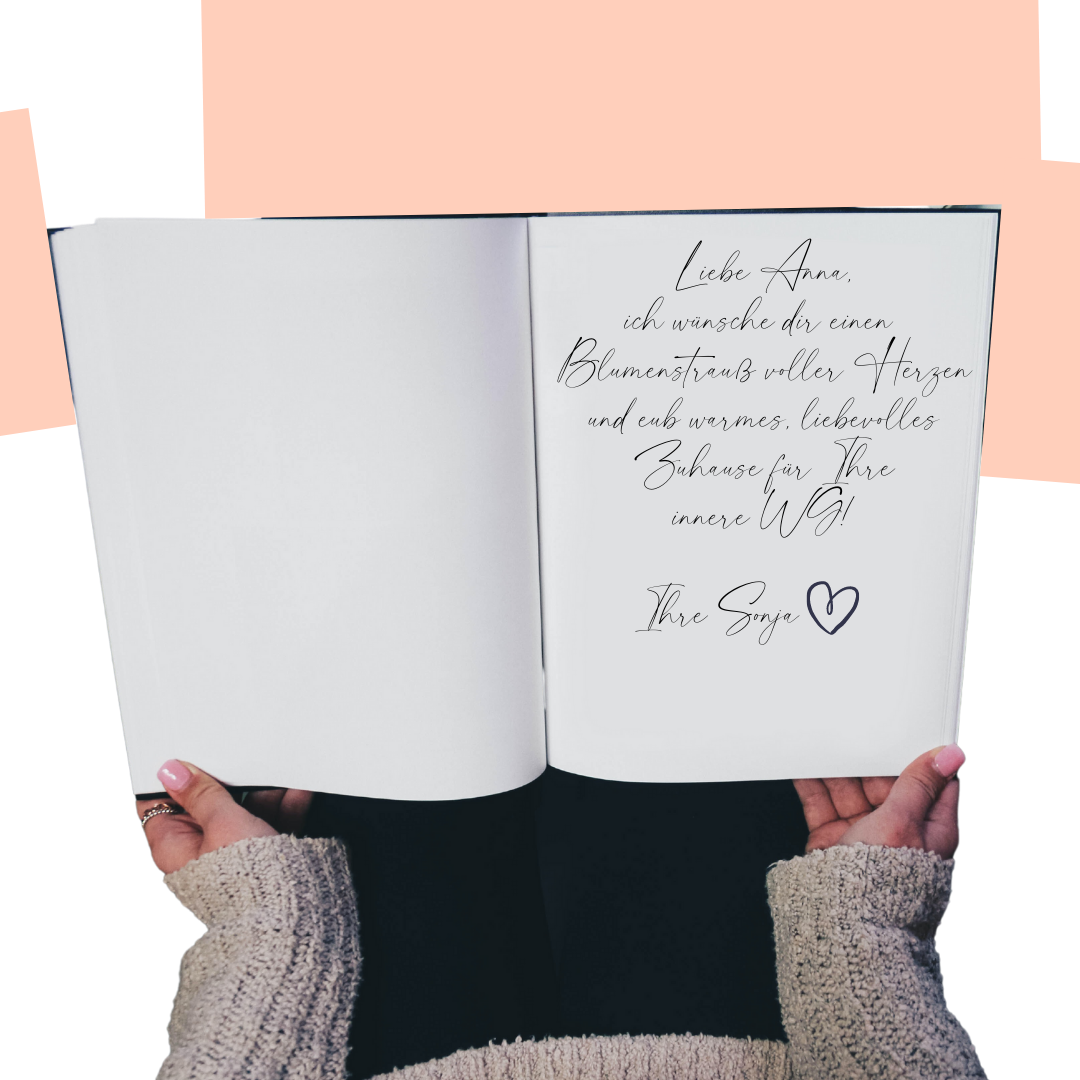 Liebe Anna,
ich wünsche dir einen
Blumenstrauß voller Herzen
und eub warmes, liebevolles
Zuhause für Ihre
innere WG!
Ihre Sonja